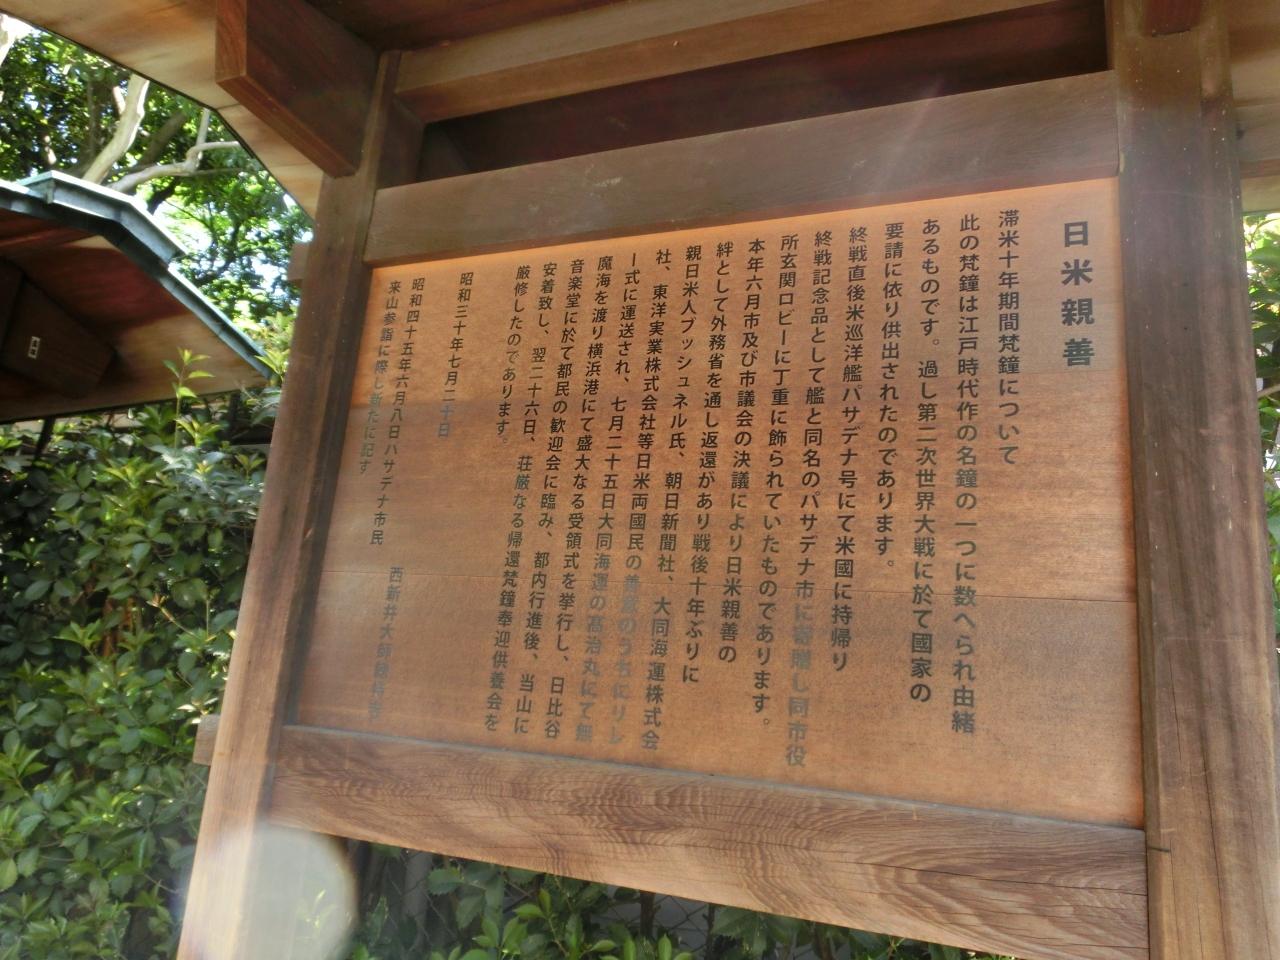 日米親善
滞米十年期間梵鐘について
此の梵鐘は江戸時代作の名鐘の一つに数へられ由緒
あるものです。過し第二次世界大戦に於て國家の
要請に依り供出されたのであります。
終戦直後米巡洋艦パサデナ号にて米國に持帰り
終戦記念品として艦と同名のパサデナ市に寄贈し同市役
所玄関ロビーに丁重に飾られていたものであります。
本年六月市及び市議会の決議により日米親善の
絆として外務省を通し返還があり戦後十年ぶりに
親日米人ブッシュネル氏、朝日新聞社、大同海運株式会
社、東洋実業株式会社等日米両國民の善意のうちにリレ
ー式に運送され、七月二十五日大同海運の高治丸にて無
魔海を渡り横浜港にて盛大なる受領式を挙行し、日比谷
音楽堂に於て都民の歓迎会に臨み、都内行進後、当山に
安着致し、翌二十六日、荘厳なる帰還梵鐘奉迎供養会を
厳修したのであります。
昭和三十年七月二十日
昭和四十五年六月八日パサデナ市民
来山参詣に際し新たに記す
西新井大師總持寺
日